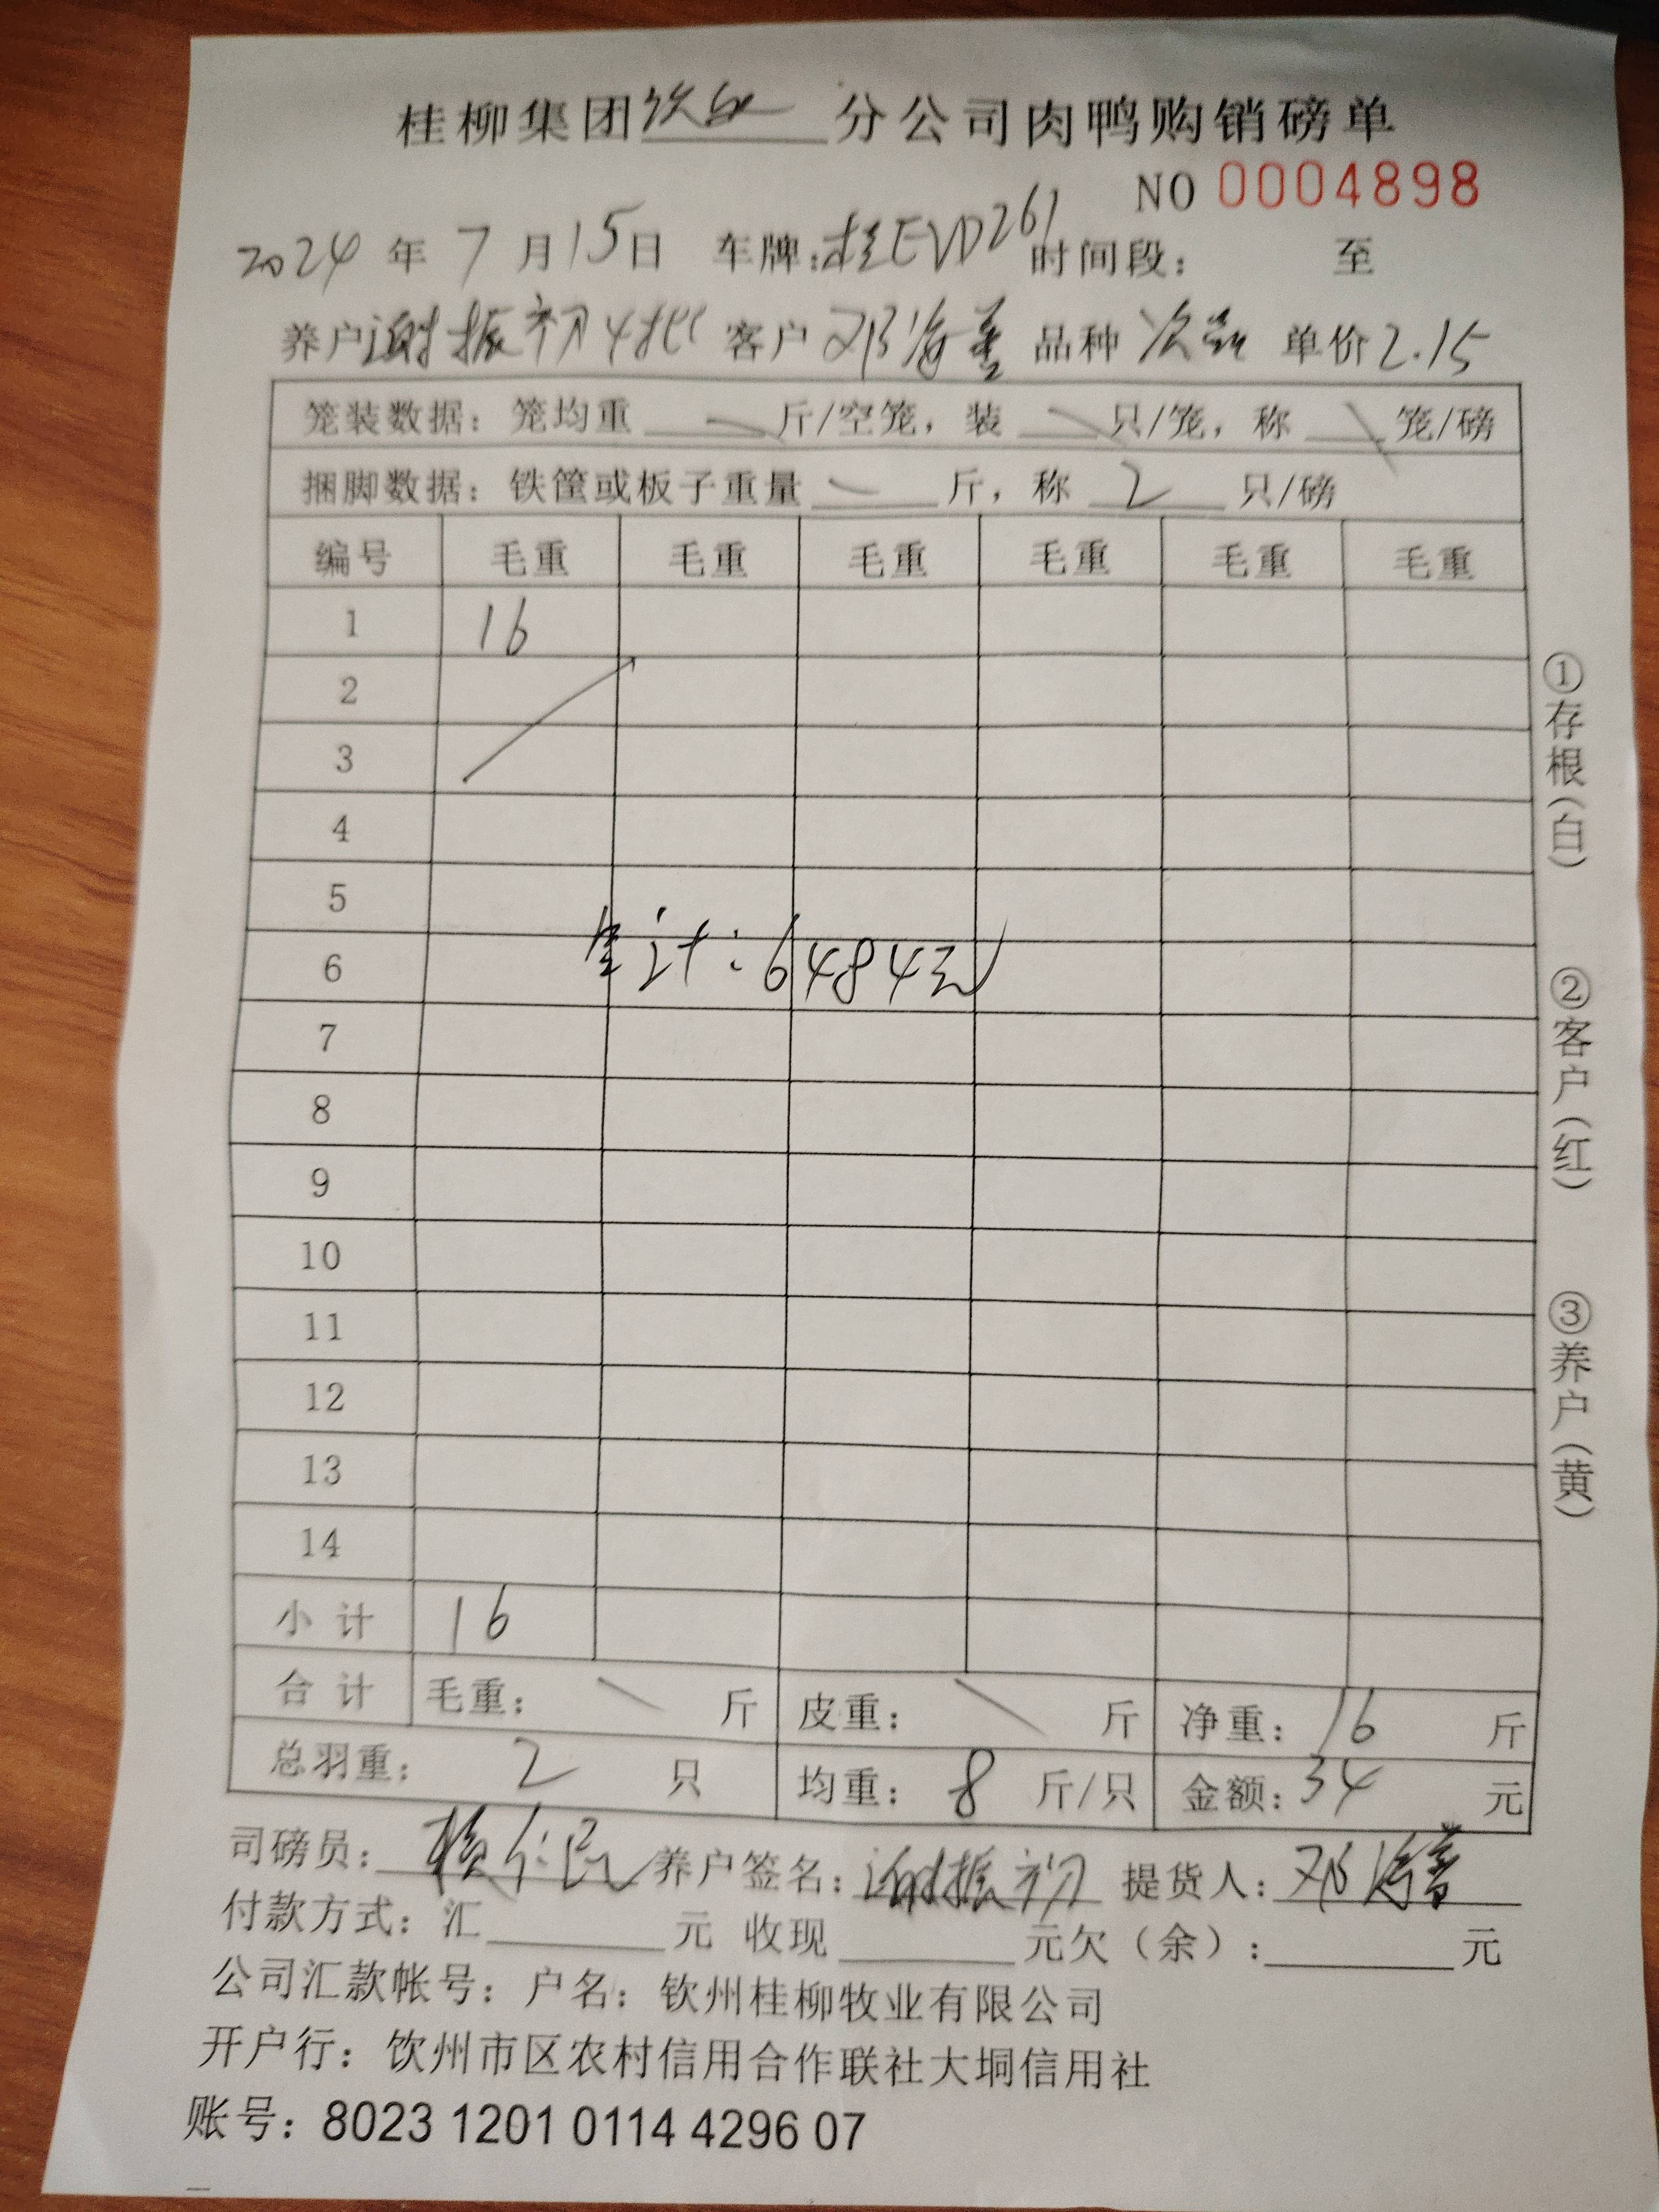 桂柳集团钦州分公司肉鸭购销磅单
NO 0004898
2024 年 7 月 15 日 车牌:桂EVD261 时间段: 至
养户谢振初4批 客户 邓海 品种 次 单价 2.15
笼装数据: 笼均重 斤/空笼, 装 只/笼, 称 笼/磅
捆脚数据: 铁筐或板子重量 斤, 称 2 只/磅
编号 毛重 毛重 毛重 毛重 毛重 毛重
1 16
2
3
4
5
6 总计:6484元
7
8
9
10
11
12
13
14
小计 16
合计 毛重: 斤 皮重: 斤 净重: 16 斤
总羽重: 2 只 均重: 8 斤/只 金额: 34 元
司磅员: 养户签名: 谢振初 提货人: 邓海
付款方式: 汇 元 收现 元欠(余): 元
公司汇款帐号: 户名: 钦州桂柳牧业有限公司
开户行: 钦州市区农村信用合作联社大垌信用社
账号: 8023 1201 0114 4296 07
①存根(白)
②客户(红)
③养户(黄)